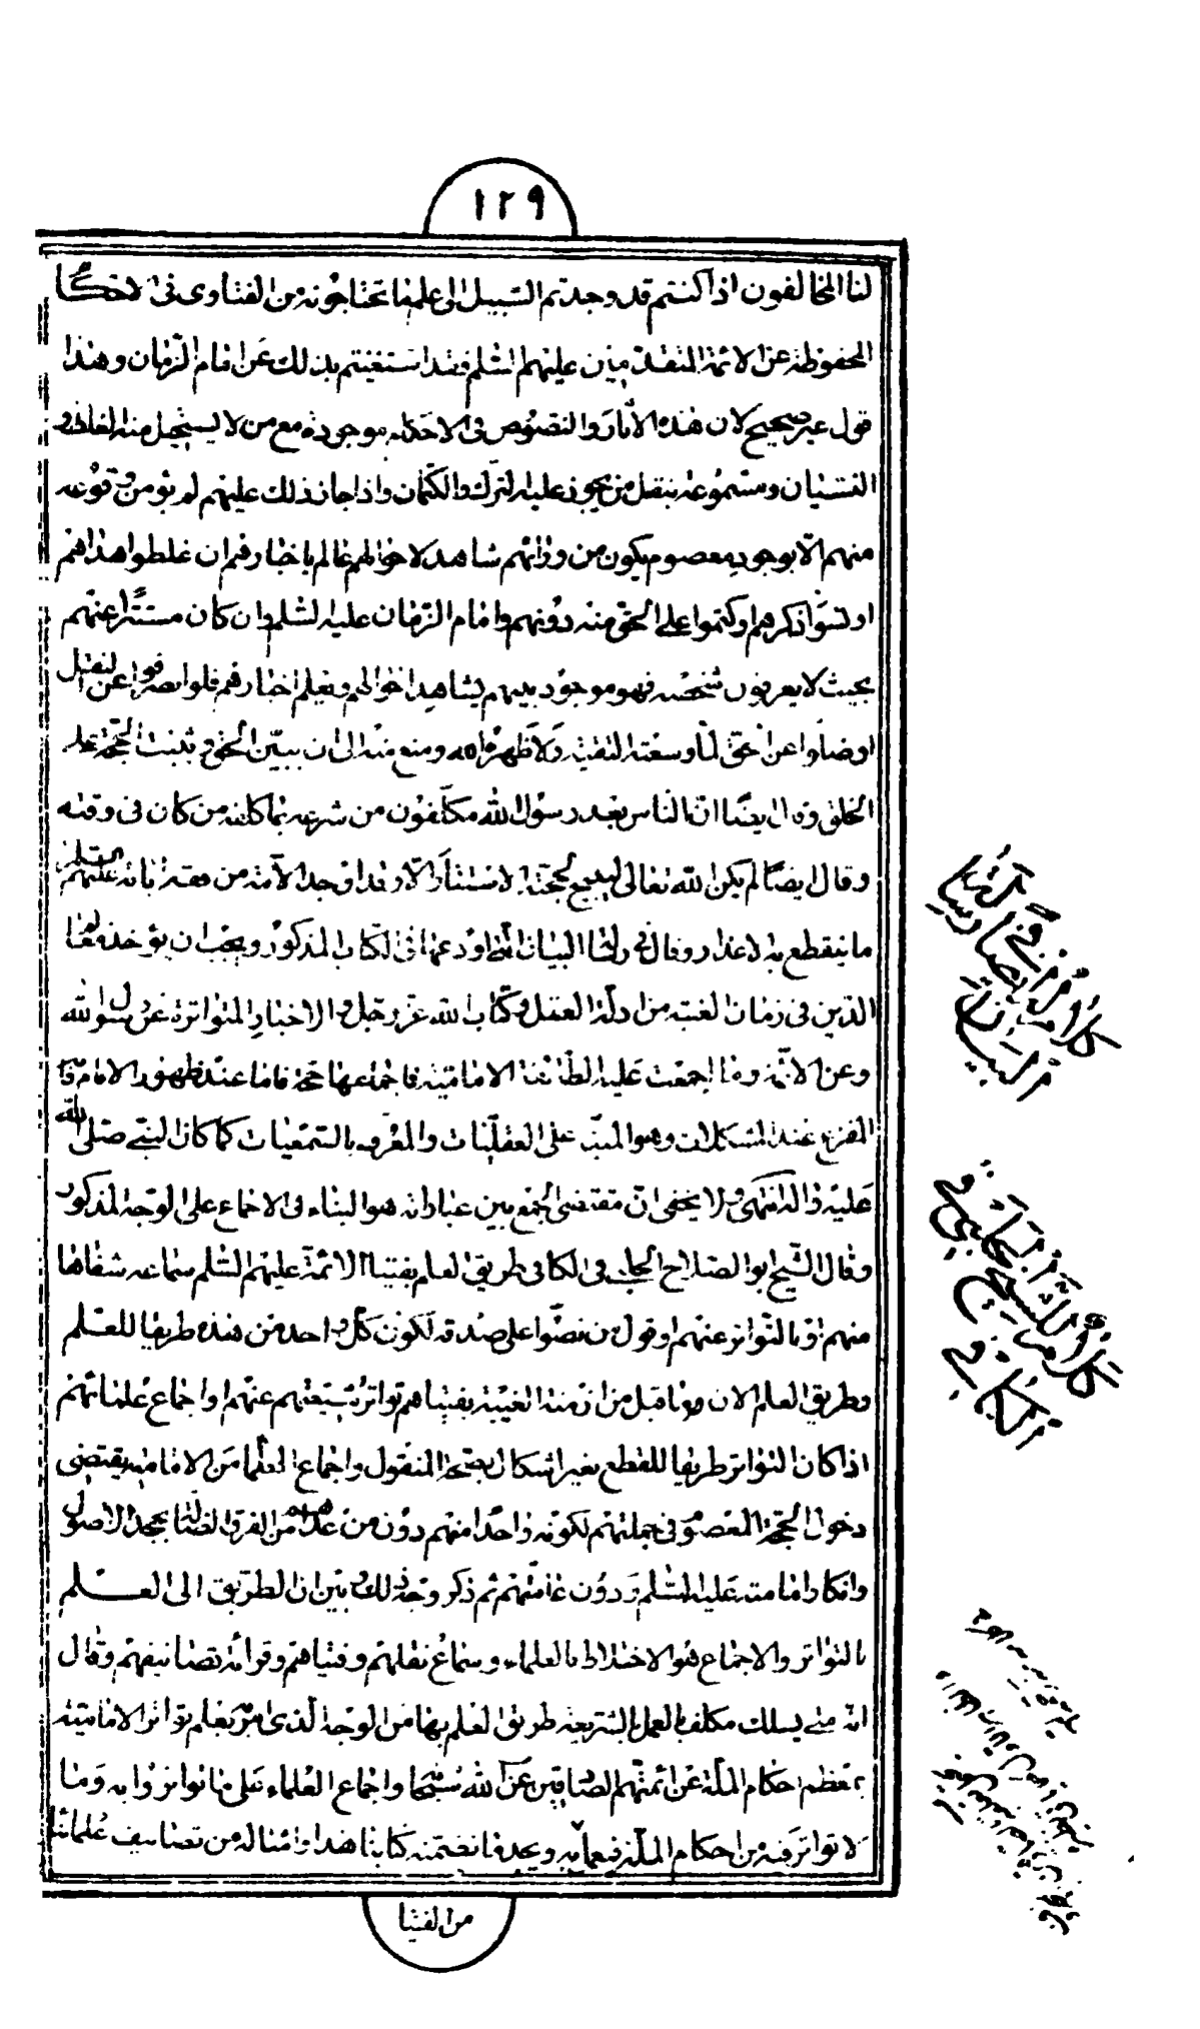 ١٢٩
لنا المخالفون اذا كنتم قد وجدتم السبيل الى علم ما تحتاجونه من الفتاوى فى الاحكا
المحفوظة عن الائمة المتقدمين عليهم السلم فقد استغنيتم بذلك عن امام الزمان وهذا
قول غير صحيح لان هذه الاثار والنصوص فى الاحكام موجودة مع من لا يستحيل منه الغلط و
النسيان ومسموعة بنقل من يجوز عليه الترك والكتمان واذا جاز ذلك عليهم لم يؤمن وقوعه
منهم الّا بوجود معصوم يكون من ورائهم شاهد لاحوالهم عالم باخبارهم ان غلطوا هداهم
او نسوا ذكرهم او كتموا علم الحق منه دونهم وامام الزمان عليه السلم وان كان مستترا عنهم
بحيث لا يعرفون شخصه فهو موجود بينهم يشاهد احوالهم ويعلم اخبارهم فلو انصرفوا عن النقل
او ضلوا عن الحق لما وسعته التقية ولاظهره الله ومنع منه الى ان يبين الحق وتثبت الحجة على
الخلق وقال ايضا ان الناس بعد رسول الله مكلفون من شرعه بما كلفه من كان فى وقته
وقال ايضا لم يكن الله تعالى ليبيح لحجته الاستتار الّا وقد اوجد الامة من فقه ابائه عليهم السلم
ما ينقطع به الاعذار وقال فى رسالة البيان التى اودعها فى الكتاب المذكور ويجب ان يؤخذ معالم
الدين فى زمان الغيبة من ادلة العقل وكتاب الله عز وجل والاخبار المتواترة عن رسول الله
وعن الائمة وما اجمعت عليه الطائفة الامامية فاجماعها حجة فاما عند ظهور الامام فا
المفزع عند المشكلات وهو المنبه على العقليات والمعرف بالسمعيات كما كان النبى صلى الله
عليه واله انتهى ولا يخفى ان مقتضى الجمع بين عباراته هو البناء فى الاجماع على الوجه المذكور
وقال الشيخ ابو الصلاح الحلبى فى الكافى طريق العلم بفتيا الائمة عليهم السلم سماعه شفاها
منهم او بالتواتر عنهم او قول من نصّوا على صدقه لكون كل واحد من هذه طريقا للعلم
وطريق العلم الان وما قبل من ازمنة الغيبة بفتياهم تواتر شيعتهم عنهم او اجماع علمائهم
اذا كان التواتر طريقا للقطع بغير اشكال بصحة المنقول واجماع العلما من الامامية يقتضى
دخول الحجة المعصوم فى جملتهم لكونه واحدا منهم دون من عداهم من الفرق الضالة بجحد الاصول
وانكار امامته عليه السلم ودون عامتهم ثم ذكر وجه ذلك وبين ان الطريق الى العلم
بالتواتر والاجماع هو الاختلاط بالعلماء وسماع نقلهم وفتياهم وقرائة تصانيفهم وقال
انه متى يسلك مكلف العمل بالشريعة طريق العلم بها من الوجه الذى امر يعلم تواتر الامامية
بمعظم احكام الملة عن ائمتهم الصادقين عن الله سبحانه واجماع العلماء على ما تواتروا به وما
لا تواتر فيه من احكام الملة فيعمل به ويجد ما تضمنه كتابنا هذا وامثاله من تصانيف علمائنا
من الفتيا
كلام فى
ايضا رسالة
البيان
كلام الشيخ
الحلبى فى
الكافى